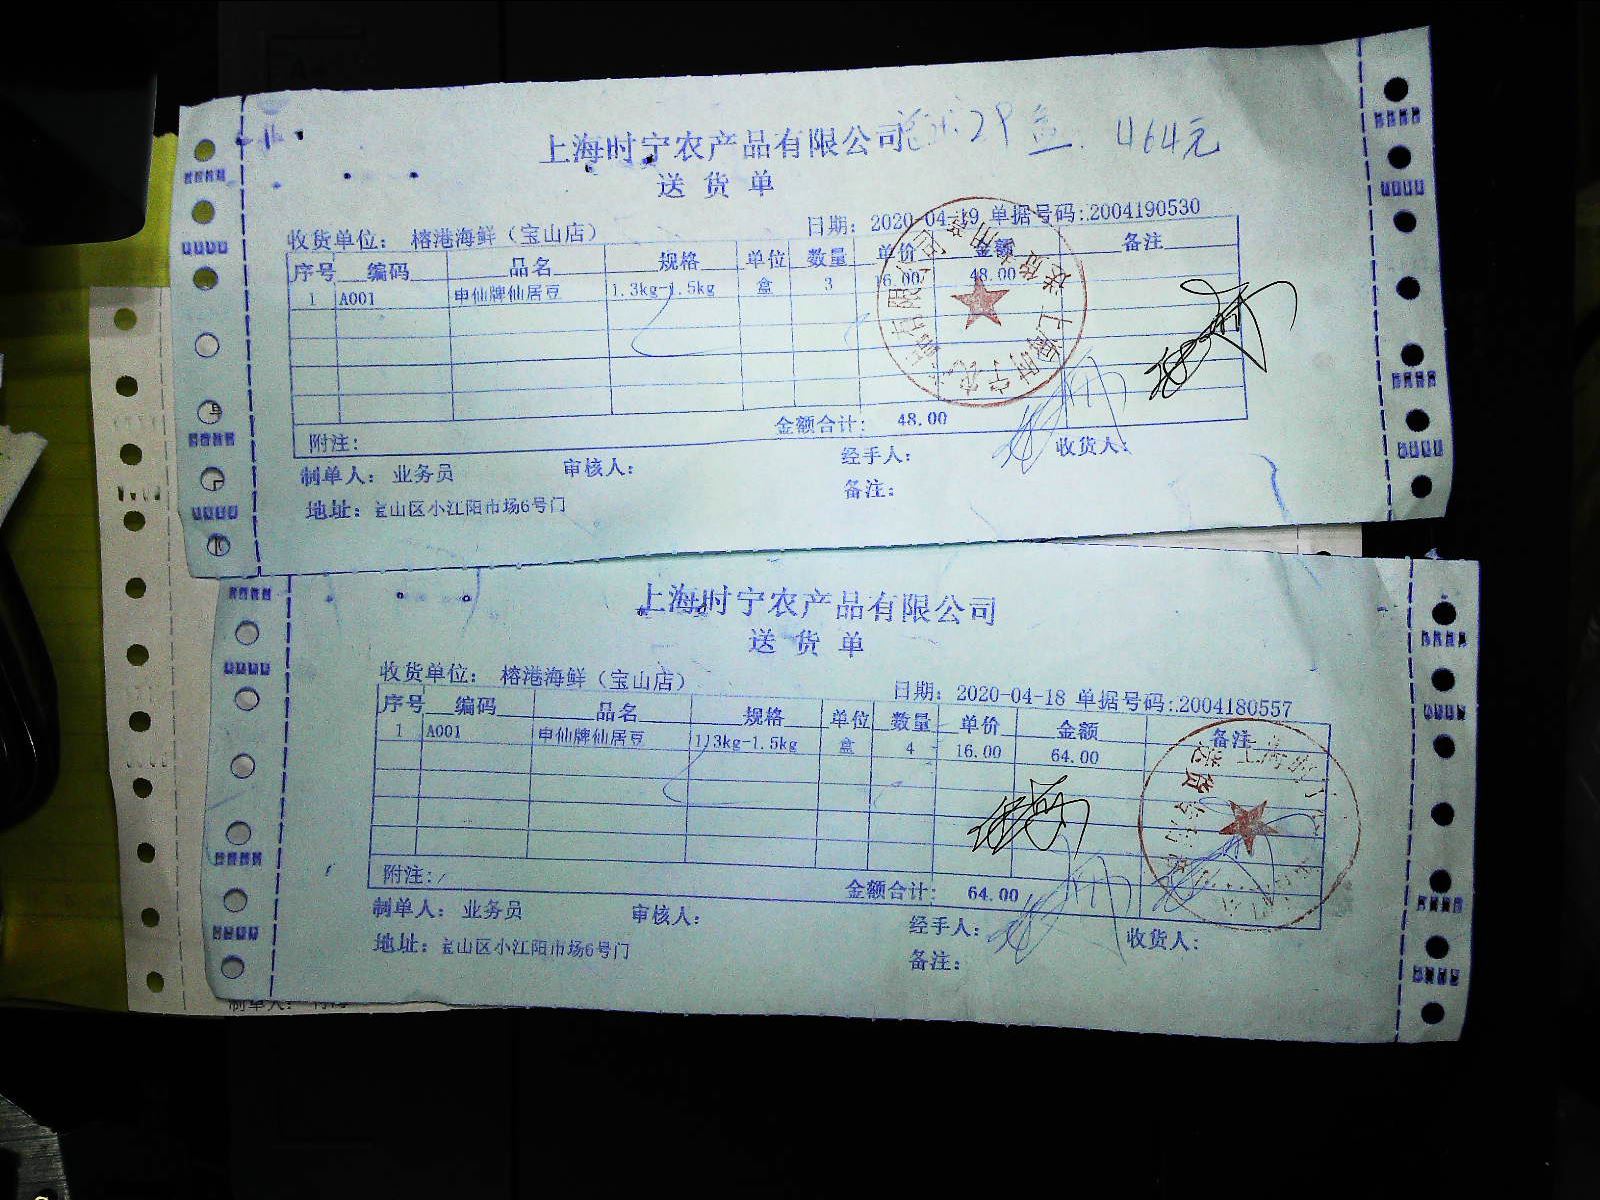 上海时宁农产品有限公司 29盒. 464元
送货单
收货单位: 榕港海鲜（宝山店） 日期: 2020-04-19 单据号码:.2004190530
序号 编码 品名 规格 单位 数量 单价 金额 备注
1 A001 申仙牌仙居豆 1.3kg-1.5kg 盒 3 16.00 48.00
金额合计: 48.00
附注:
制单人: 业务员 审核人: 经手人: 收货人:
地址: 宝山区小江阳市场6号门 备注:
上海时宁农产品有限公司
送货单
收货单位: 榕港海鲜（宝山店） 日期: 2020-04-18 单据号码:.2004180557
序号 编码 品名 规格 单位 数量 单价 金额 备注
1 A001 申仙牌仙居豆 1.3kg-1.5kg 盒 4 16.00 64.00
附注: 金额合计: 64.00
制单人: 业务员 审核人: 经手人: 收货人:
地址: 宝山区小江阳市场6号门 备注:
制单人: